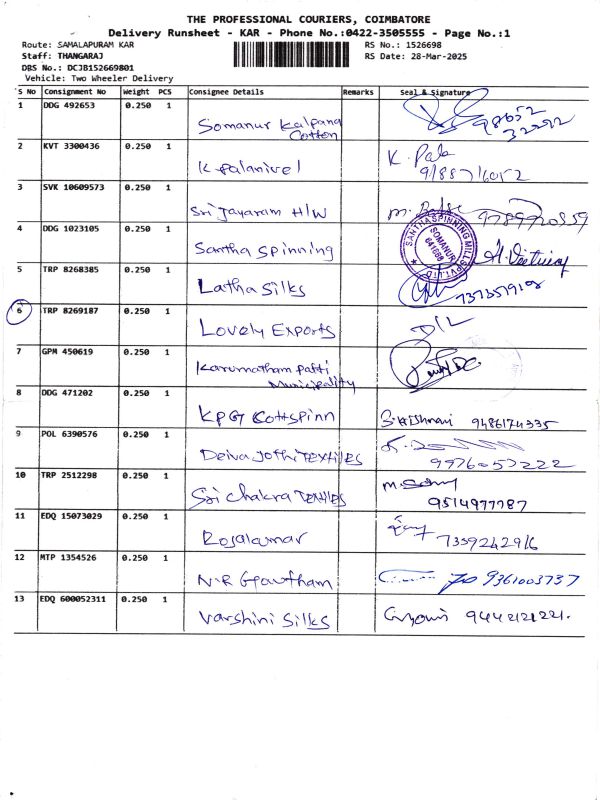 THE PROFESSIONAL COURIERS, COIMBATORE
Delivery Runsheet - KAR - Phone No.:0422-3505555 - Page No.:1
Route: SAMALAPURAM KAR RS No.: 1526698
Staff: THANGARAJ RS Date: 28-Mar-2025
DRS No.: DCJB1526669801
Vehicle: Two Wheeler Delivery
S No Consignment No Weight PCS Consignee Details Remarks Seal & Signature
1 DDG 492653 0.250 1 Somanur Kalpana
Cotton
2 KVT 3300436 0.250 1 K palanivel K. Pala
3 SVK 10609573 0.250 1 Sri Jayaram H/W
4 DDG 1023105 0.250 1 Santha Spinning SANTHA SPINNING MILLS PVT. LTD SOMANUR
5 TRP 8268385 0.250 1 Latha Silks
6 TRP 8269187 0.250 1 Lovely Exports D/L
7 GPM 450619 0.250 1 Karumatham patti
Municipality
8 DDG 471202 0.250 1 KPG Cottspinn 9486174335
9 POL 6390576 0.250 1 Deiva Jothi TEXTILES 9976057222
10 TRP 2512298 0.250 1 Sri Chakra TEXTILES
9514977787
11 EDQ 15073029 0.250 1 7359242916
12 MTP 1354526 0.250 1 N.R Gowtham 9361003737
13 EDQ 600052311 0.250 1 Varshini Silks 9442121221.